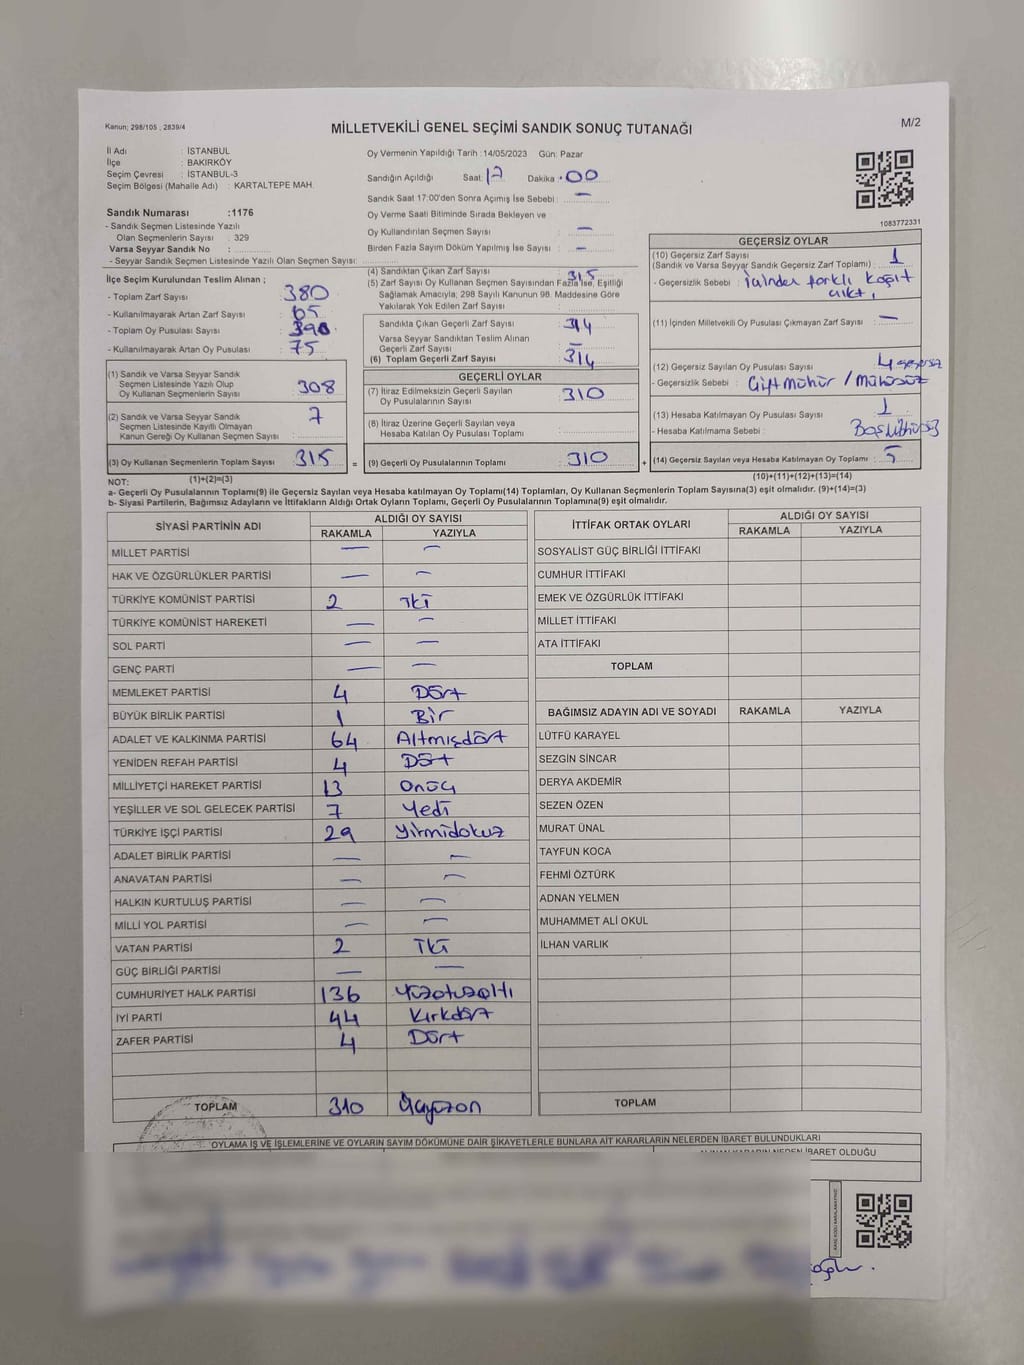 Kanun; 298/105 ; 2839/4
MİLLETVEKİLİ GENEL SEÇİMİ SANDIK SONUÇ TUTANAĞI
M/2
İl Adı : İSTANBUL
İlçe : BAKIRKÖY
Seçim Çevresi : İSTANBUL-3
Seçim Bölgesi (Mahalle Adı) : KARTALTEPE MAH.
Sandık Numarası :1176
- Sandık Seçmen Listesinde Yazılı
Olan Seçmenlerin Sayısı : 329
Varsa Seyyar Sandık No :
- Seyyar Sandık Seçmen Listesinde Yazılı Olan Seçmen Sayısı:
Oy Vermenin Yapıldığı Tarih :14/05/2023 Gün: Pazar
Sandığın Açıldığı Saat: 17 Dakika : 00
Sandık Saat 17:00'den Sonra Açımış İse Sebebi : —
Oy Verme Saati Bitiminde Sırada Bekleyen ve
Oy Kullandırılan Seçmen Sayısı : —
Birden Fazla Sayım Döküm Yapılmış İse Sayısı : —
1083772331
İlçe Seçim Kurulundan Teslim Alınan ;
- Toplam Zarf Sayısı : 380
- Kullanılmayarak Artan Zarf Sayısı : 65
- Toplam Oy Pusulası Sayısı : 390
- Kullanılmayarak Artan Oy Pusulası : 75
(1) Sandık ve Varsa Seyyar Sandık
Seçmen Listesinde Yazılı Olup
Oy Kullanan Seçmenlerin Sayısı : 308
(2) Sandık ve Varsa Seyyar Sandık
Seçmen Listesinde Kayıtlı Olmayan
Kanun Gereği Oy Kullanan Seçmen Sayısı : 7
(3) Oy Kullanan Seçmenlerin Toplam Sayısı : 315
(4) Sandıktan Çıkan Zarf Sayısı : 315
(5) Zarf Sayısı Oy Kullanan Seçmen Sayısından Fazla İse, Eşitliği
Sağlamak Amacıyla; 298 Sayılı Kanunun 98. Maddesine Göre
Yakılarak Yok Edilen Zarf Sayısı :
Sandıkla Çıkan Geçerli Zarf Sayısı : 314
Varsa Seyyar Sandıktan Teslim Alınan
Geçerli Zarf Sayısı : —
(6) Toplam Geçerli Zarf Sayısı : 314
GEÇERLİ OYLAR
(7) İtiraz Edilmeksizin Geçerli Sayılan
Oy Pusulalarının Sayısı : 310
(8) İtiraz Üzerine Geçerli Sayılan veya
Hesaba Katılan Oy Pusulaları Toplamı :
= (9) Geçerli Oy Pusulalarının Toplamı : 310 +
GEÇERSİZ OYLAR
(10) Geçersiz Zarf Sayısı
(Sandık ve Varsa Seyyar Sandık Geçersiz Zarf Toplamı) : 1
- Geçersizlik Sebebi : İçinden farklı kağıt
çıktı.
(11) İçinden Milletvekili Oy Pusulası Çıkmayan Zarf Sayısı : —
(12) Geçersiz Sayılan Oy Pusulası Sayısı : 4 geçersiz
- Geçersizlik Sebebi : Çift mühür / mühürsüz
(13) Hesaba Katılmayan Oy Pusulası Sayısı : 1
- Hesaba Katılmama Sebebi :
(14) Geçersiz Sayılan veya Hesaba Katılmayan Oy Toplamı : 5
NOT: (1)+(2)=(3)
(10)+(11)+(12)+(13)=(14)
a- Geçerli Oy Pusulalarının Toplamı(9) ile Geçersiz Sayılan veya Hesaba katılmayan Oy Toplamı(14) Toplamları, Oy Kullanan Seçmenlerin Toplam Sayısına(3) eşit olmalıdır. (9)+(14)=(3)
b- Siyasi Partilerin, Bağımsız Adayların ve İttifakların Aldığı Ortak Oyların Toplamı, Geçerli Oy Pusulalarının Toplamına(9) eşit olmalıdır.
SİYASİ PARTİNİN ADI ALDIĞI OY SAYISI
RAKAMLA YAZIYLA
MİLLET PARTİSİ — —
HAK VE ÖZGÜRLÜKLER PARTİSİ — —
TÜRKİYE KOMÜNİST PARTİSİ 2 İki
TÜRKİYE KOMÜNİST HAREKETİ — —
SOL PARTİ — —
GENÇ PARTİ — —
MEMLEKET PARTİSİ 4 Dört
BÜYÜK BİRLİK PARTİSİ 1 Bir
ADALET VE KALKINMA PARTİSİ 64 Altmışdört
YENİDEN REFAH PARTİSİ 4 Dört
MİLLİYETÇİ HAREKET PARTİSİ 13 Onüç
YEŞİLLER VE SOL GELECEK PARTİSİ 7 Yedi
TÜRKİYE İŞÇİ PARTİSİ 29 Yirmidokuz
ADALET BİRLİK PARTİSİ — —
ANAVATAN PARTİSİ — —
HALKIN KURTULUŞ PARTİSİ — —
MİLLİ YOL PARTİSİ — —
VATAN PARTİSİ 2 İki
GÜÇ BİRLİĞİ PARTİSİ — —
CUMHURİYET HALK PARTİSİ 136 Yüzotuzaltı
İYİ PARTİ 44 Kırkdört
ZAFER PARTİSİ 4 Dört
TOPLAM 310 Üçyüzon
İTTİFAK ORTAK OYLARI ALDIĞI OY SAYISI
RAKAMLA YAZIYLA
SOSYALİST GÜÇ BİRLİĞİ İTTİFAKI
CUMHUR İTTİFAKI
EMEK VE ÖZGÜRLÜK İTTİFAKI
MİLLET İTTİFAKI
ATA İTTİFAKI
TOPLAM
BAĞIMSIZ ADAYIN ADI VE SOYADI RAKAMLA YAZIYLA
LÜTFÜ KARAYEL
SEZGİN SİNCAR
DERYA AKDEMİR
SEZEN ÖZEN
MURAT ÜNAL
TAYFUN KOCA
FEHMİ ÖZTÜRK
ADNAN YELMEN
MUHAMMET ALİ OKUL
İLHAN VARLIK
TOPLAM
OYLAMA İŞ VE İŞLEMLERİNE VE OYLARIN SAYIM DÖKÜMÜNE DAİR ŞİKAYETLERLE BUNLARA AİT KARARLARIN NELERDEN İBARET BULUNDUKLARI
İBARET OLDUĞU